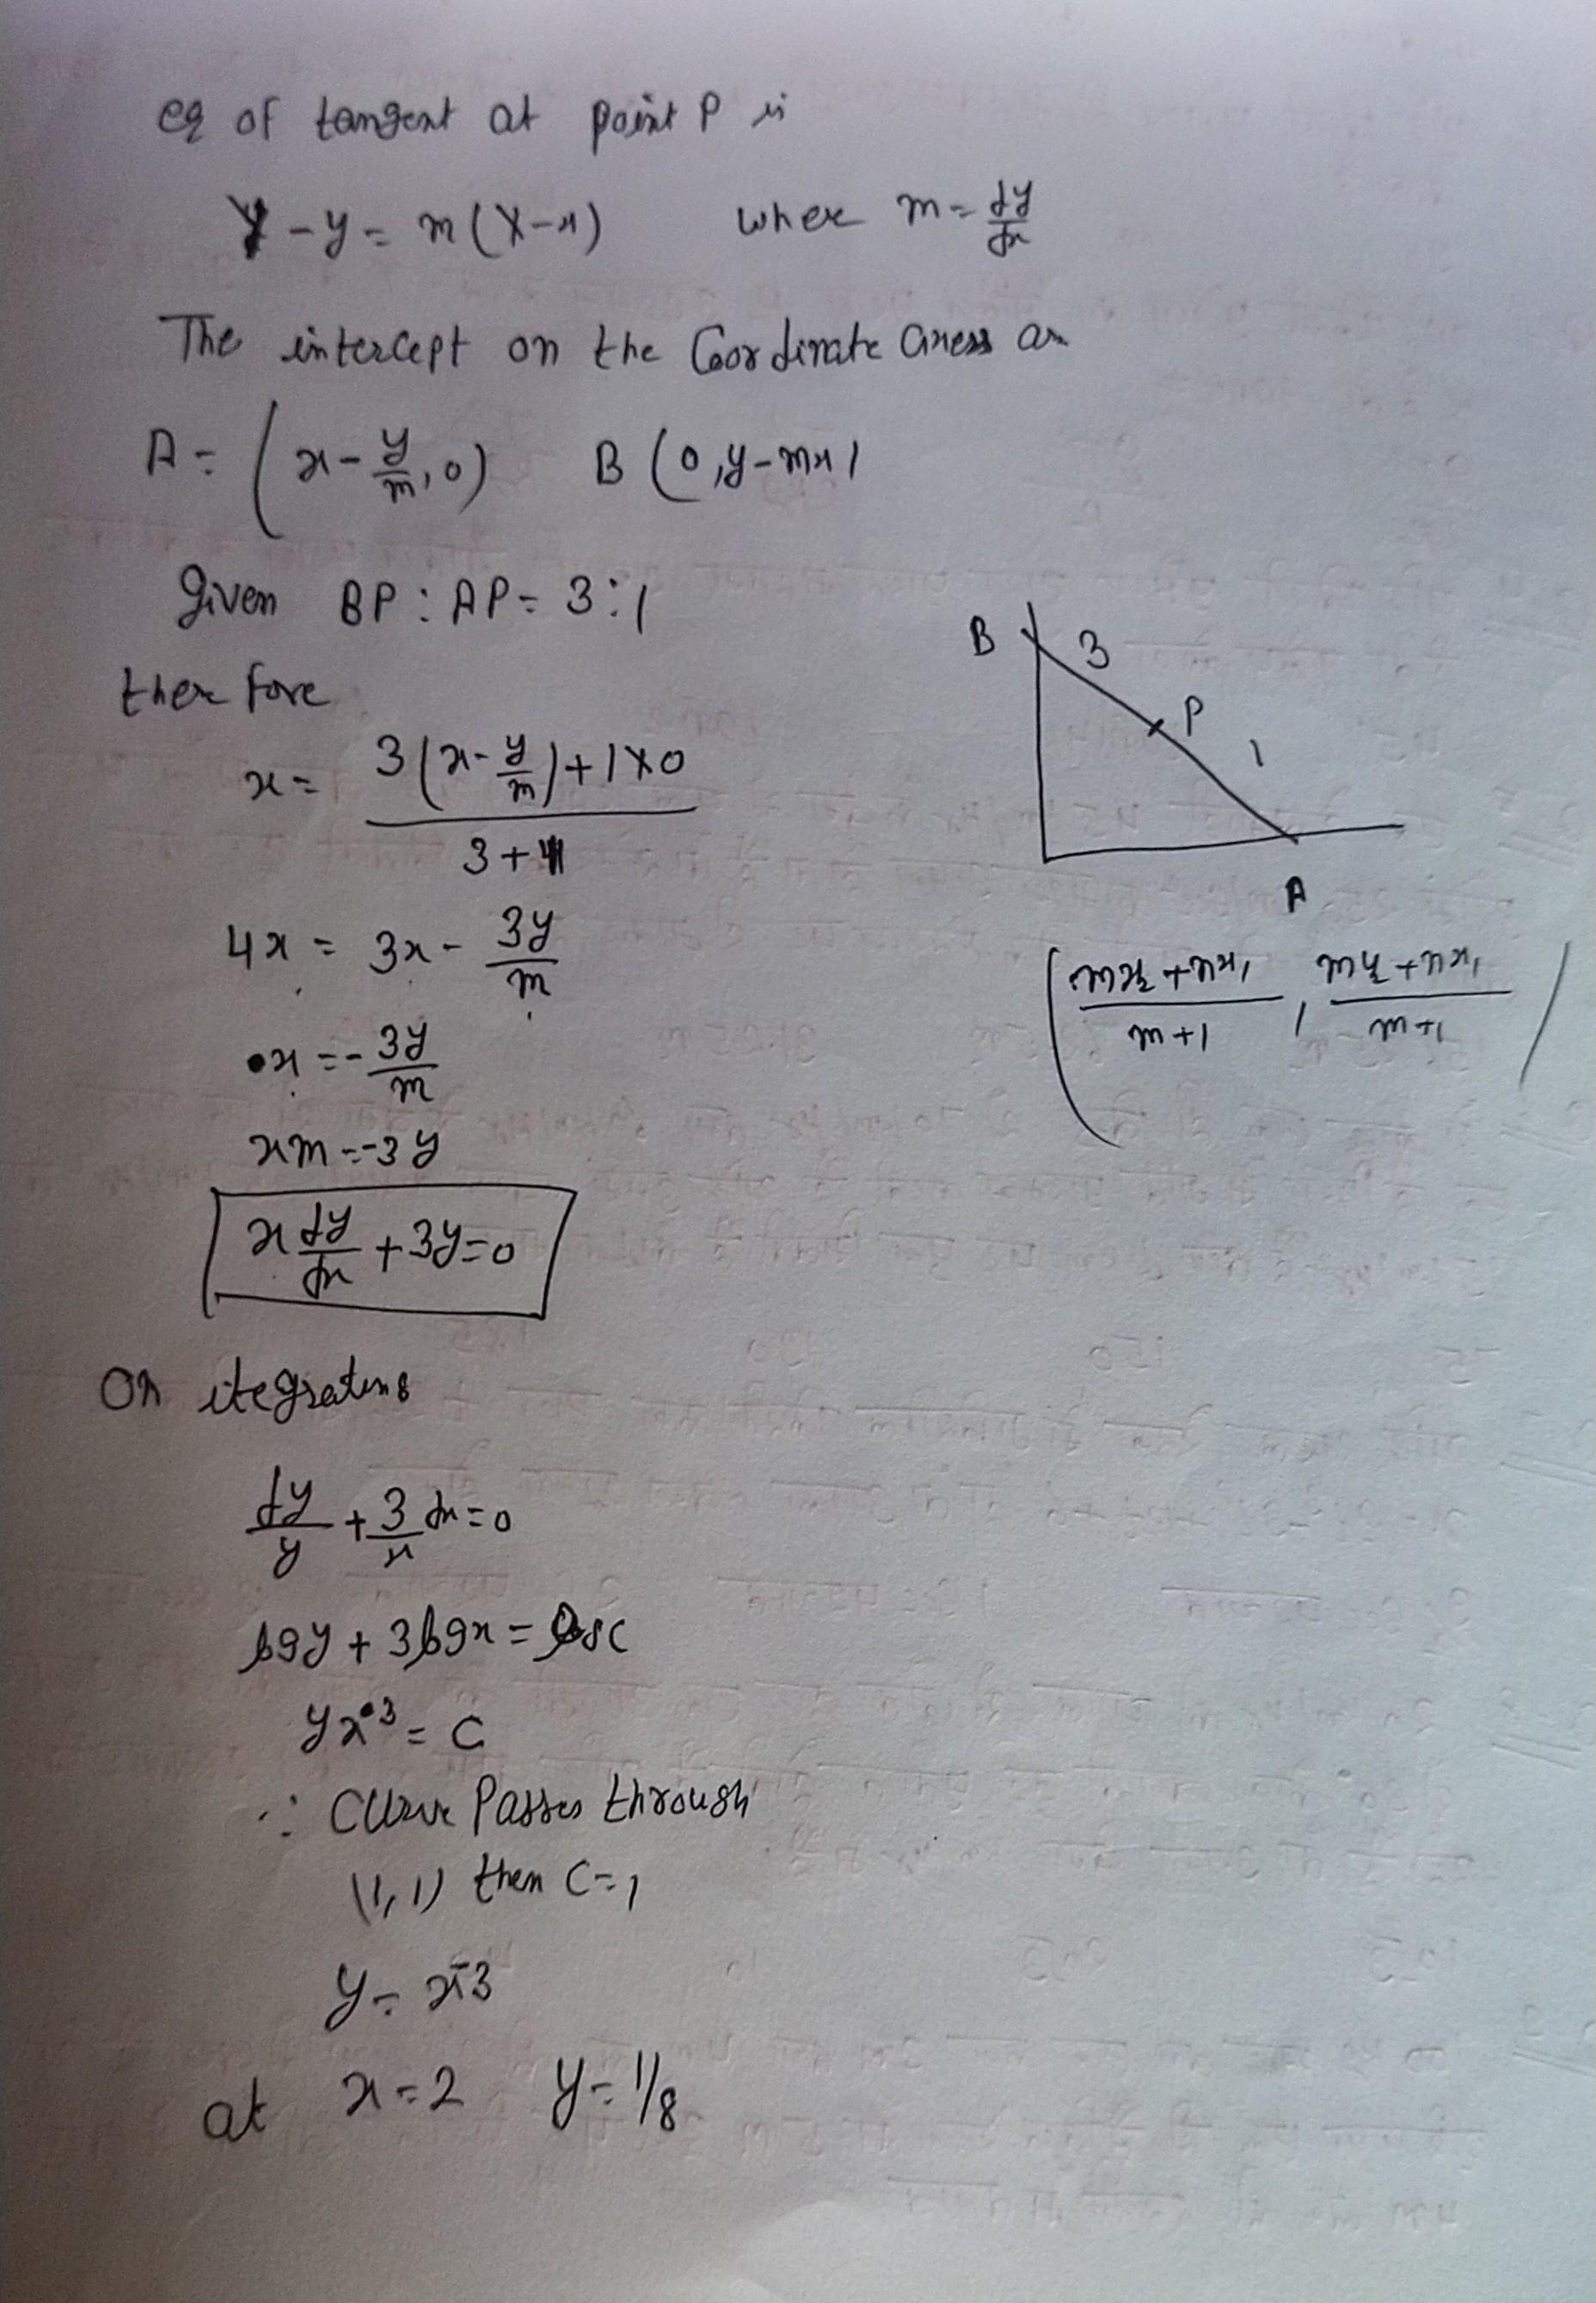 eq of tangent at point P is
Y - y = m(X-x) where m = dy/dx
The intercept on the Coordinate axess are
A = (x - y/m, 0) B (0, y-mx)
Given BP : AP = 3:1
there fore
x = (3(x - y/m) + 1×0)/(3+1)
4x = 3x - 3y/m
x = - 3y/m
xm = -3y
x dy/dx + 3y = 0
B 3
P
1
A
((mx2 + nx1)/(m+1), (my2 + nx1)/(m+1))
On itegrating
dy/y + 3/x dx = 0
log y + 3 log x = log c
yx^3 = C
∵ Curve Passes through
(1,1) then C = 1
y = x^-3
at x = 2 y = 1/8